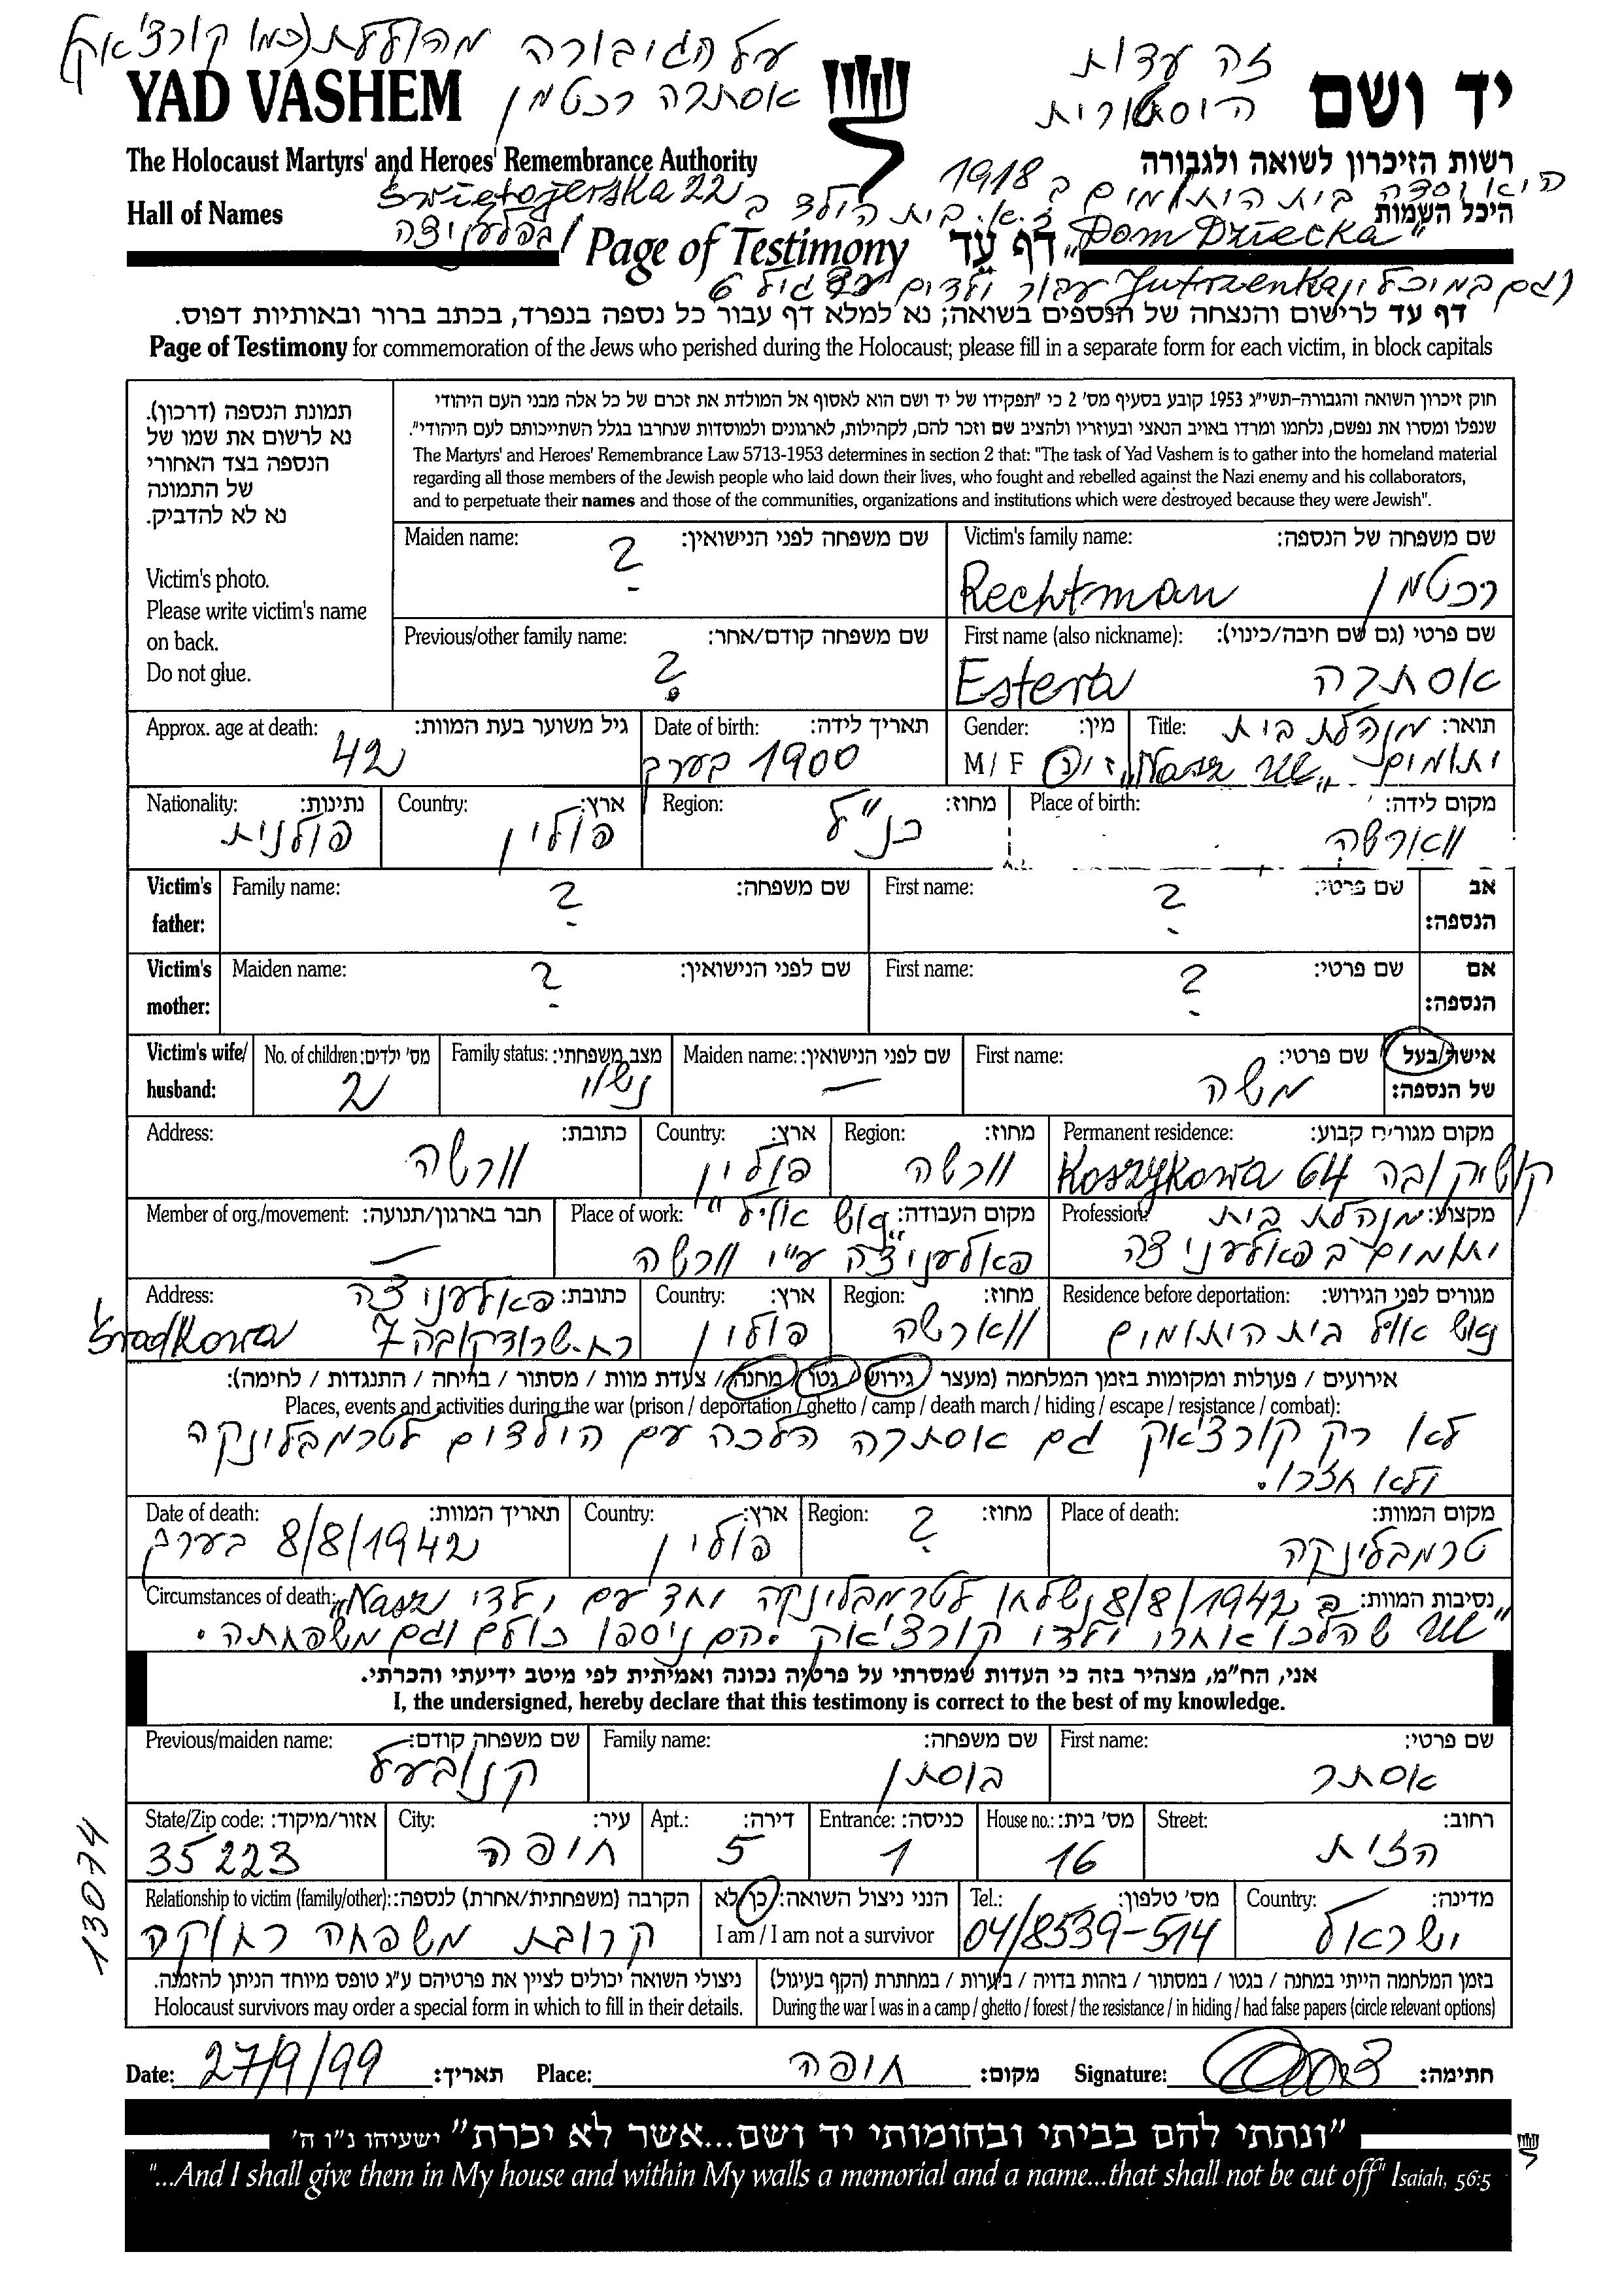 על הגיבורה מהוללת (כמו קורצ'אק)
אסתרה רכטמן
זה עדות
היסטורית
YAD VASHEM
יד ושם
The Holocaust Martyrs' and Heroes' Remembrance Authority
רשות הזיכרון לשואה ולגבורה
היא יסדה בית היתומים ב 1918
ז.א. בית הילד ב Świętojerska 22
Hall of Names
היכל השמות
"Dom Dziecka"
Page of Testimony
דף עד
(גם במיכלין Jutrzenka עבור ילדים עד גיל 6
דף עד לרישום והנצחה של הנספים בשואה; נא למלא דף עבור כל נספה בנפרד, בכתב ברור ובאותיות דפוס.
Page of Testimony for commemoration of the Jews who perished during the Holocaust; please fill in a separate form for each victim, in block capitals
תמונת הנספה (דרכון).
נא לרשום את שמו של
הנספה בצד האחורי
של התמונה
נא לא להדביק.
Victim's photo.
Please write victim's name
on back.
Do not glue.
חוק זיכרון השואה והגבורה-תשי"ג 1953 קובע בסעיף מס' 2 כי "תפקידו של יד ושם הוא לאסוף אל המולדת את זכרם של כל אלה מבני העם היהודי
שנפלו ומסרו את נפשם, נלחמו ומרדו באויב הנאצי ובעוזריו ולהציב שם וזכר להם, לקהילות, לארגונים ולמוסדות שנחרבו בגלל השתייכותם לעם היהודי".
The Martyrs' and Heroes' Remembrance Law 5713-1953 determines in section 2 that: "The task of Yad Vashem is to gather into the homeland material
regarding all those members of the Jewish people who laid down their lives, who fought and rebelled against the Nazi enemy and his collaborators,
and to perpetuate their names and those of the communities, organizations and institutions which were destroyed because they were Jewish".
Victim's family name: שם משפחה של הנספה:
Rechtman רכטמן
Maiden name: שם משפחה לפני הנישואין:
?
First name (also nickname): שם פרטי (גם שם חיבה/כינוי):
Estera אסתרה
Previous/other family name: שם משפחה קודם/אחר:
?
Title: תואר: מנהלת בית
יתומים "Nasz שול"
Gender: מין:
M / F ז / נ
Date of birth: תאריך לידה:
1900 בערך
Approx. age at death: גיל משוער בעת המוות:
42
Place of birth: מקום לידה:
ווארשה
Region: מחוז:
כנ"ל
Country: ארץ:
פולין
Nationality: נתינות:
פולנית
Victim's father: Family name: שם משפחה: ? First name: שם פרטי: ? אב הנספה:
Victim's mother: Maiden name: שם לפני הנישואין: ? First name: שם פרטי: ? אם הנספה:
Victim's wife/ husband: אישה/בעל של הנספה:
First name: שם פרטי:
משה
Maiden name: שם לפני הנישואין:
—
Family status: מצב משפחתי:
נשוי
No. of children: מס' ילדים:
2
Permanent residence: מקום מגורים קבוע:
Koszykowa 64 קושיקובה
Region: מחוז:
וורשה
Country: ארץ:
פולין
Address: כתובת:
וורשה
Profession: מקצוע: מנהלת בית
יתומים בפאלעניצה
Place of work: מקום העבודה:
פאלעניצה ע"י וורשה
Member of org./movement: חבר בארגון/תנועה:
—
Residence before deportation: מגורים לפני הגירוש:
בית היתומים
Region: מחוז:
ווארשה
Country: ארץ:
פולין
Address: כתובת: פאלעניצה
רח. שרודקובה 7 Środkowa
אירועים / פעולות ומקומות בזמן המלחמה (מעצר / גירוש / גטו / מחנה / צעדת מוות / מסתור / בריחה / התנגדות / לחימה):
Places, events and activities during the war (prison / deportation / ghetto / camp / death march / hiding / escape / resistance / combat):
לא רק קורצ'אק גם אסתרה הלכה עם הילדים לטרמבלינקה
ולא חזרו.
Place of death: מקום המוות:
טרמבלינקה
Region: מחוז:
?
Country: ארץ:
פולין
Date of death: תאריך המוות:
8/8/1942 בערך
Circumstances of death: נסיבות המוות: ב 8/8/1942 נשלחו לטרמבלינקה יחד עם ילדי "Nasz
שהלכו אחרי ילדי קורצ'אק. הם ניספו כולם וגם משפחתה.
אני, הח"מ, מצהיר בזה כי העדות שמסרתי על פרטיה נכונה ואמיתית לפי מיטב ידיעתי והכרתי.
I, the undersigned, hereby declare that this testimony is correct to the best of my knowledge.
First name: שם פרטי:
אסתר
Family name: שם משפחה:
בוסתן
Previous/maiden name: שם משפחה קודם:
קנובעל
Street: רחוב:
הזית
House no.: מס' בית:
16
Entrance: כניסה:
1
Apt.: דירה:
5
City: עיר:
חיפה
State/Zip code: אזור/מיקוד:
35223
Country: מדינה:
ישראל
Tel.: מס' טלפון:
04/8539-514
הנני ניצול השואה: כן/לא
I am / I am not a survivor
Relationship to victim (family/other): הקרבה (משפחתית/אחרת) לנספה:
קרובת משפחה רחוקה
13074
בזמן המלחמה הייתי במחנה / בגטו / במסתור / בזהות בדויה / ביערות / במחתרת (הקף בעיגול)
During the war I was in a camp / ghetto / forest / the resistance / in hiding / had false papers (circle relevant options)
ניצולי השואה יכולים לציין את פרטיהם ע"ג טופס מיוחד הניתן להזמנה.
Holocaust survivors may order a special form in which to fill in their details.
Date: 27/9/99 תאריך: Place: חיפה מקום: Signature: חתימה:
"ונתתי להם בביתי ובחומותי יד ושם...אשר לא יכרת" ישעיהו נ"ו ה'
"...And I shall give them in My house and within My walls a memorial and a name...that shall not be cut off" Isaiah, 56:5